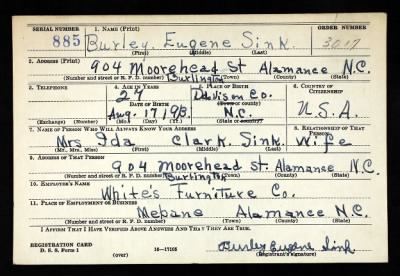 SERIAL NUMBER 1. NAME (Print) ORDER NUMBER
885 Burley Eugene Sink. 3017
(First) (Middle) (Last)
2. ADDRESS (Print)
904 Moorehead St Alamance N.C.
Burlington
(Number and street or R. F. D. number) (Town) (County) (State)
3. TELEPHONE 4. AGE IN YEARS 5. PLACE OF BIRTH 6. COUNTRY OF CITIZENSHIP
27 Davison Co.
DATE OF BIRTH (Town or county)
Aug. 17 1913. N.C. U.S.A.
(Exchange) (Number) (Mo.) (Day) (Yr.) (State or country)
7. NAME OF PERSON WHO WILL ALWAYS KNOW YOUR ADDRESS 8. RELATIONSHIP OF THAT PERSON
Mrs Ida Clark Sink. Wife
(Mr., Mrs., Miss) (First) (Middle) (Last)
9. ADDRESS OF THAT PERSON
904 Moorehead St. Alamance N.C.
Burlington
(Number and street or R. F. D. number) (Town) (County) (State)
10. EMPLOYER'S NAME
White's Furniture Co.
11. PLACE OF EMPLOYMENT OR BUSINESS
Mebane Alamance N.C.
(Number and street or R. F. D. number) (Town) (County) (State)
I AFFIRM THAT I HAVE VERIFIED ABOVE ANSWERS AND THAT THEY ARE TRUE.
REGISTRATION CARD
D. S. S. Form 1 16—17105 Burley Eugene Sink
(over) (Registrant's signature)